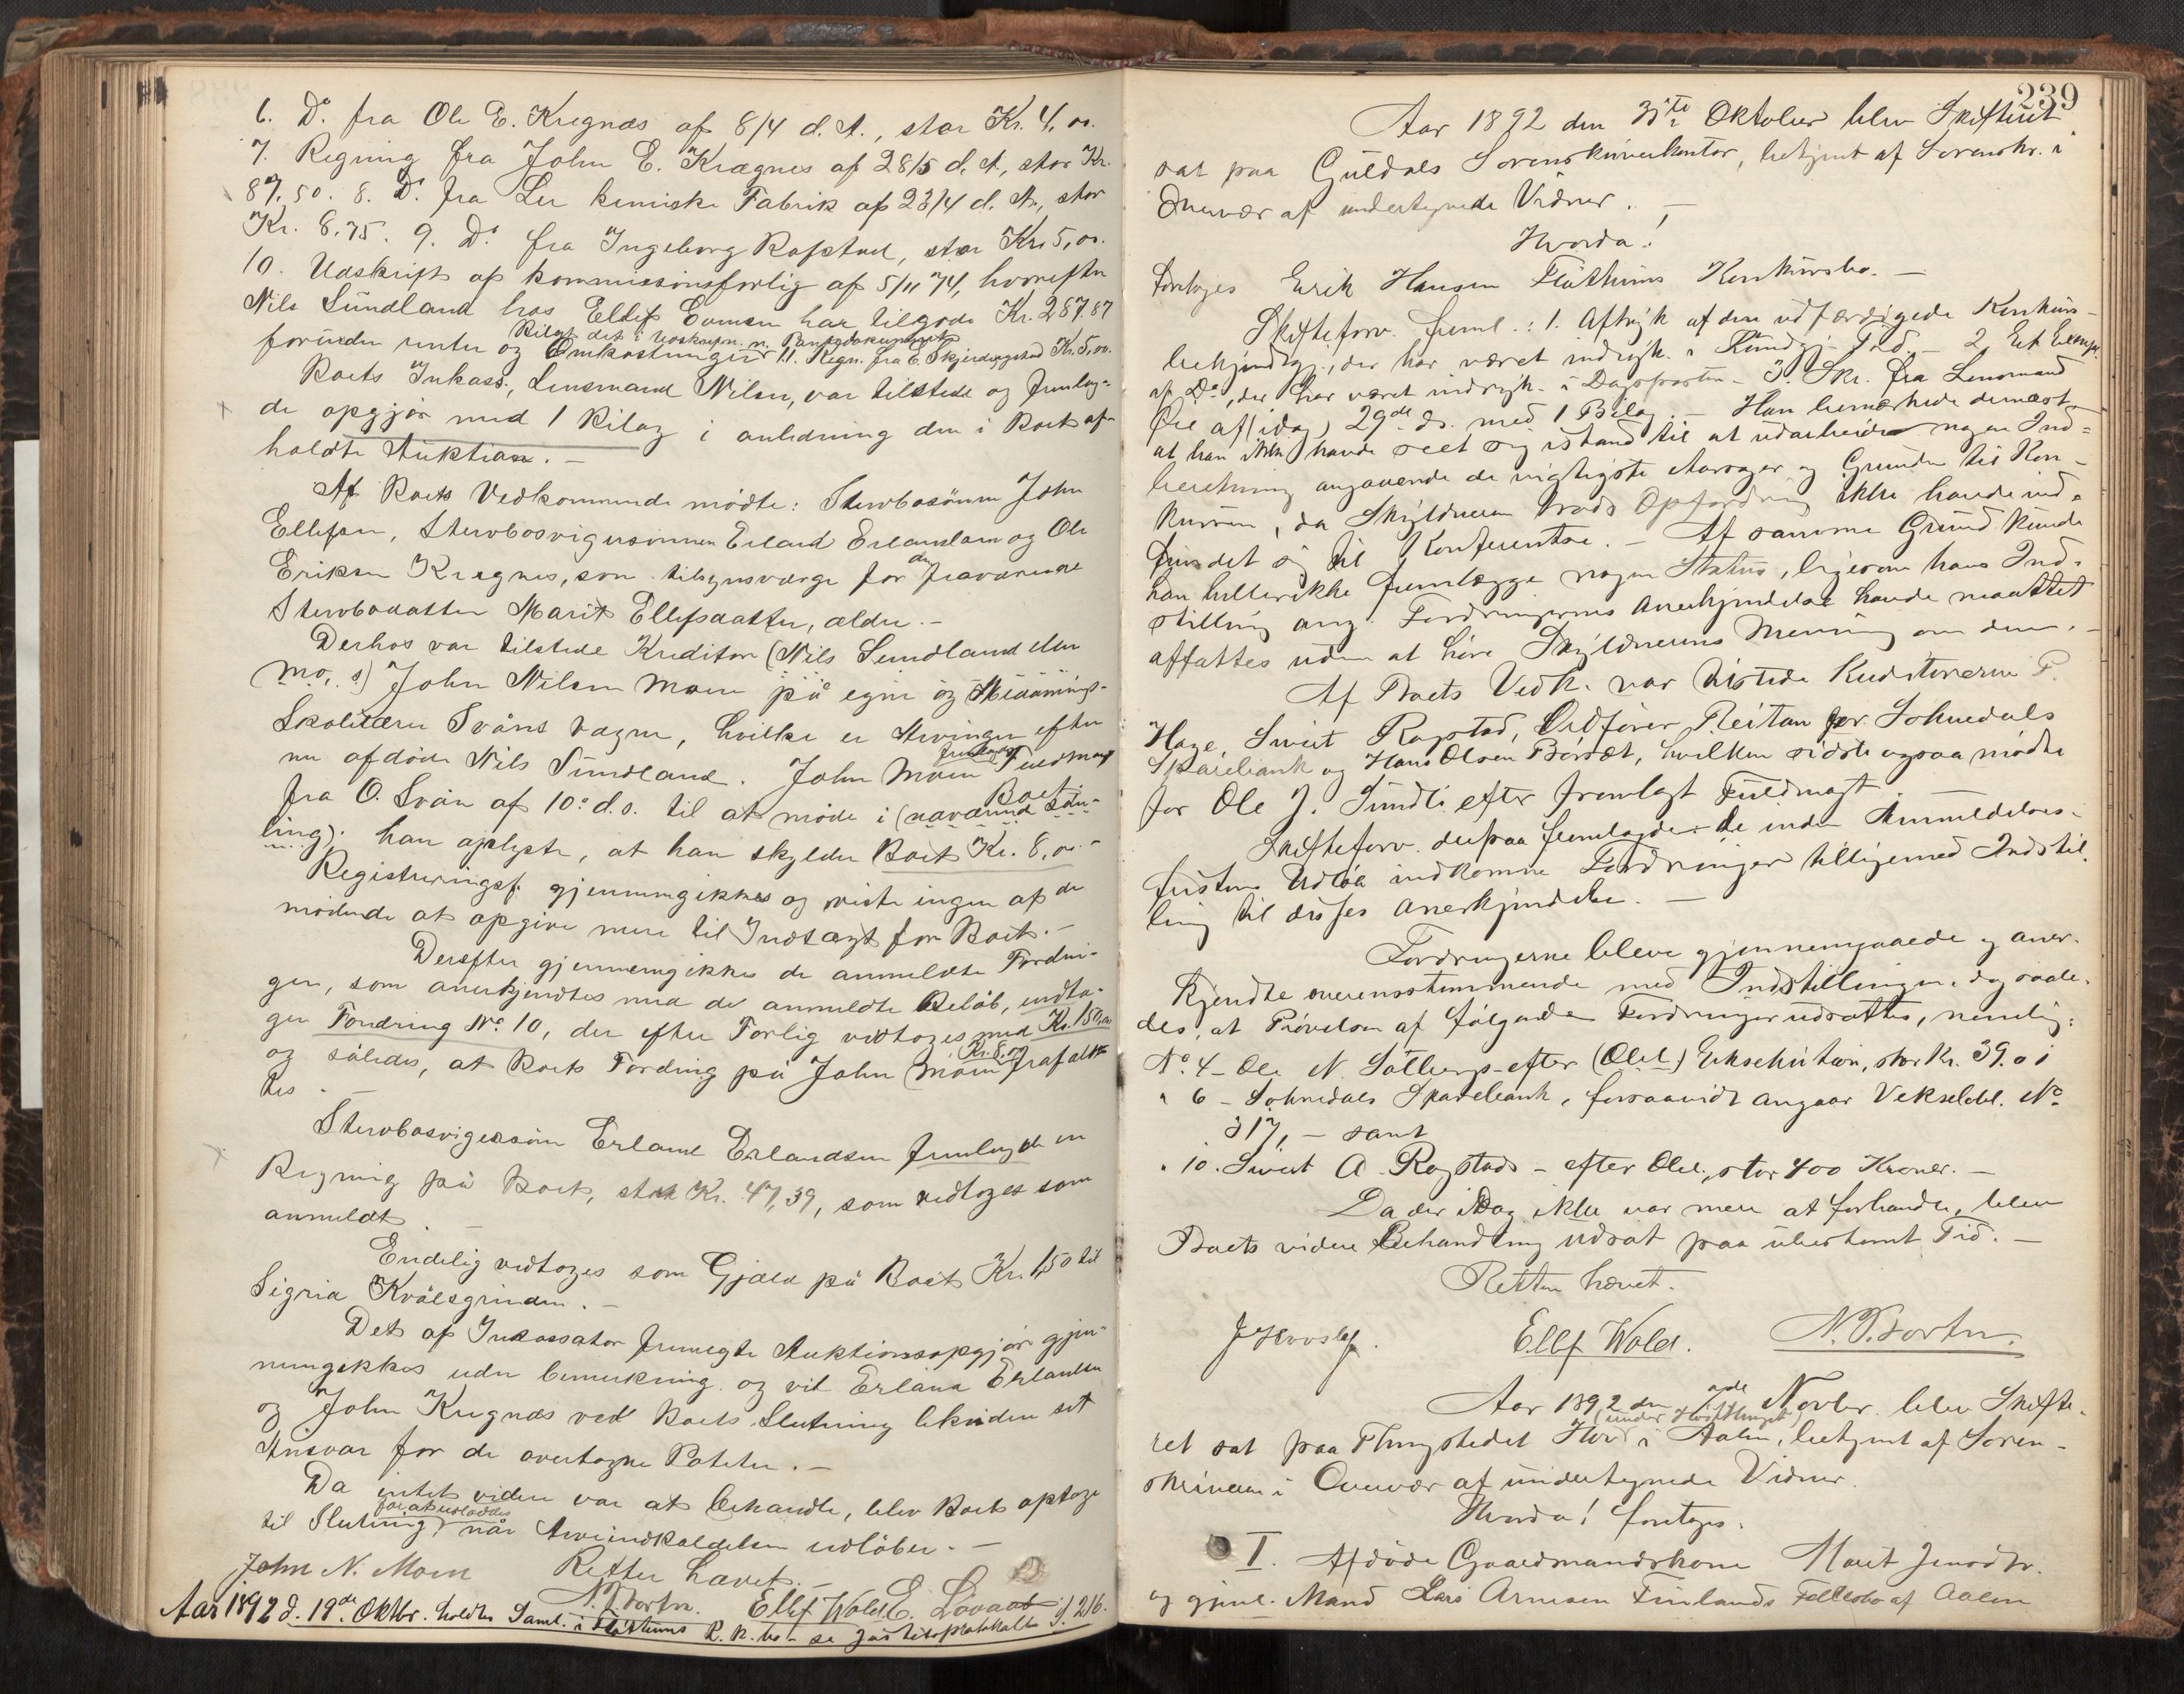 6. Do. fra Ole E. Kregnæs af 8/4 d. A., stor Kr. 4,00.
7. Regning fra John E. Krægnes af 28/5 d. A., stor Kr.
87,50. 8. Do. fra Ler kemiske Fabrik af 23/4 d. A., stor
Kr. 8,75. 9. Do. fra Ingeborg Rogstad, stor Kr. 5,00.
10. Udskrift af kommissionsforlig af 5/11 74, hvorefter
Nils Sundland hos Ellef Evensen har tilgode Kr. 287.87
Bilagt det i Udskriften n. Pantedokument
foruden renter og Omkostninger 11. Regn. fra E. Skjerdingstad Kr. 5,00.
Boets Inkass., Lensmand Nilsen, var tilstede og fremlag-
de opgjør med 1 Bilag i anledning den i Boet af-
holdte Auktion. –
Af Boets Vedkommende mødte: Stervbosønnen John
Ellefsen, Stervbosvigersønnen Erland Erlandsen og Ole
Eriksen Kregnes, som tilsynsværge for den fraværende
Stervbodatter Marit Ellefsdatter, ældre. –
Derhos var tilstede Kreditor (Nils Sundland eller
mo, s) John Nilsen Moen på egne og
Skolelærer Svåns vegne, hvilke er Arvinger efter
nu afdøde Nils Sundland. John Moen fremlagde Fuldmagt
fra O. Svån af 10de d.s. til at møde i (nærværende Sam-
Boet
ling); han oplyste, at han skylder Boet Kr. 8,00. –
Registreringsf. gjennemgikkes og viste ingen af de
mødende at opgive mere til Indtægt for Boet. –
Derefter gjennemgikkes de anmeldte Fordrin-
ger, som anerkjendtes med de anmeldte Beløb, undta-
gen Fordring No. 10, der efter Forlig vedtoges med Kr. 150,00
og således, at Boets Fordring på John Moen Kr. 8,00 frafald-
tes –
Stervbosvigersøn Erland Erlandsen fremlagde en
Regning på Boet, stor Kr. 47,39, som vedtoges som
anmeldt. –
Endelig vedtoges som Gjæld på Boet Kr. 1,50 til
Sigrid Kvålsgrinden. –
Det af Inkassator fremlagte Auktionsopgjør gjen-
nemgikkes uden bemerkning og vil Erland Erlandsen
og John Kregnæs ved Boets Slutning likvidere sit
Ansvar for de overtagne Poteter. –
Da intet videre var at behandle, blev Boet optoge
for at udloddes
til Slutning, når Arveindkaldelsen udløber. –
Retten hævet. –
John N. Moen N. T. Fortn. Ellf Wold. E. Lövaas
Aar 1892 d. 19de Oktbr. holdtes Saml. i Fløttums K. K. bo – se Justitsprotokollen f. 216.
239
Aar 1892 den 31te Oktober blev Skifteret
sat paa Guldals Sorenskriverkontor, betjent af Sorenskr. i
Overvær af undertegnede Vidner. –
Hvorda!
Foretoges Erik Hansen Fløttums Konkursbo. –
Skifteforv. freml.: 1. Aftryk af den udfærdigede Konkurs-
bekjendtgj., der har været indryk. i Kundgj. Tid. – 2. Et Exempl.
af Do., der har været indryk. i Dagsposten – 3. Skr. fra Lensmand
Øie af (idag) 29de ds. med 1 Bilag. – Han bemærkede dernæst
at han ikke havde seet sig istand til at udarbeide nogen Ind-
beretning angaaende de vigtigste Aarsager og Grunde til Kon-
kursen, da Skyldneren trods Opfordring ikke havde ind-
fundet sig til Konferentse. – Af samme Grund kunde
han hellerikke fremlægge nogen Status, ligesom hans Ind-
stilling ang. Fordringernes Anerkjendelse havde maattet
affattes uden at høre Skyldnerens Mening om dem. –
Af Boets Vedk. var tilstede Kreditorerne P.
Hage, Sivert Rogstad, Ordfører Reitan for Soknedals
Sparebank og Hans Olsen Børset, hvilken sidste ogsaa mødte
for Ole J. Sundli efter fremlagt Fuldmagt. –
Skifteforv. derpaa fremlagde de inden Anmeldelses-
fristens Udløb indkomne Fordringer tilligemed Indstil-
ling til disses Anerkjendelse. –
Fordringerne bleve gjennemgaaede og aner-
kjendte overensstemmende med Indstillingen, dog saale-
des, at Prøvelsen af følgende Fordringer udsattes, nemlig:
No. 4 – Ole N. Solberg – efter (Obl.) Eksekution, stor Kr. 39.01
" 6 – Soknedals Sparebank, forsaavidt angaar Vekselobl. No.
317, – samt
" 10. Sivert A. Rogstads – efter Obl., stor 400 Kroner. –
Da der idag ikke var mere at forhandle, blev
Boets videre Behandling udsat paa ubestemt Tid. –
Retten hævet.
Ellf Wold. N. T. Fortn.
Aar 1892 den 2de Novbr. blev Skifte-
(under Høstthinget)
ret sat paa Thingstedet Hov i Aalen, betjent af Soren-
skriveren i Overvær af undertegnede Vidner.
Hvorda! foretoges.
I. Afdøde Gaardmandskone Marit Jensdtr.
og gjenl. Mand Lars Arnesen Finlands Fællesbo af Aalen